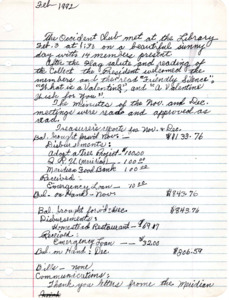 Feb 1992
The Occident Club met at the Library
Feb. 3 at 1:30 on a beautiful sunny
day with 14 members present
After the Flag salute and reading of
the Collect the President welcomed the
members and read "Friendly Silence",
"What is a Valentine", and "A Valentine
Wish for You".
The minutes of the Nov. and Dec.
meetings were read and approved as
read.
Treasurer's report for Nov. & Dec.
Bal. brought forwd Nov. -
Disbursments:
Adopt a tree Project
(musical)
Meridian Food Bank 100 00
Received:
Emergency Loan - 10 00
Bal. on Hand - Nov. $843.76
Bal. brought forwd Dec. $843.76
Disbursements:
Homestead Restaurant -
Received:
Emergency Loan - - 32.00
Bal. on Hand: Dec. $806.59
Bills - none.
Communications:
Thank you letters from the Meridian